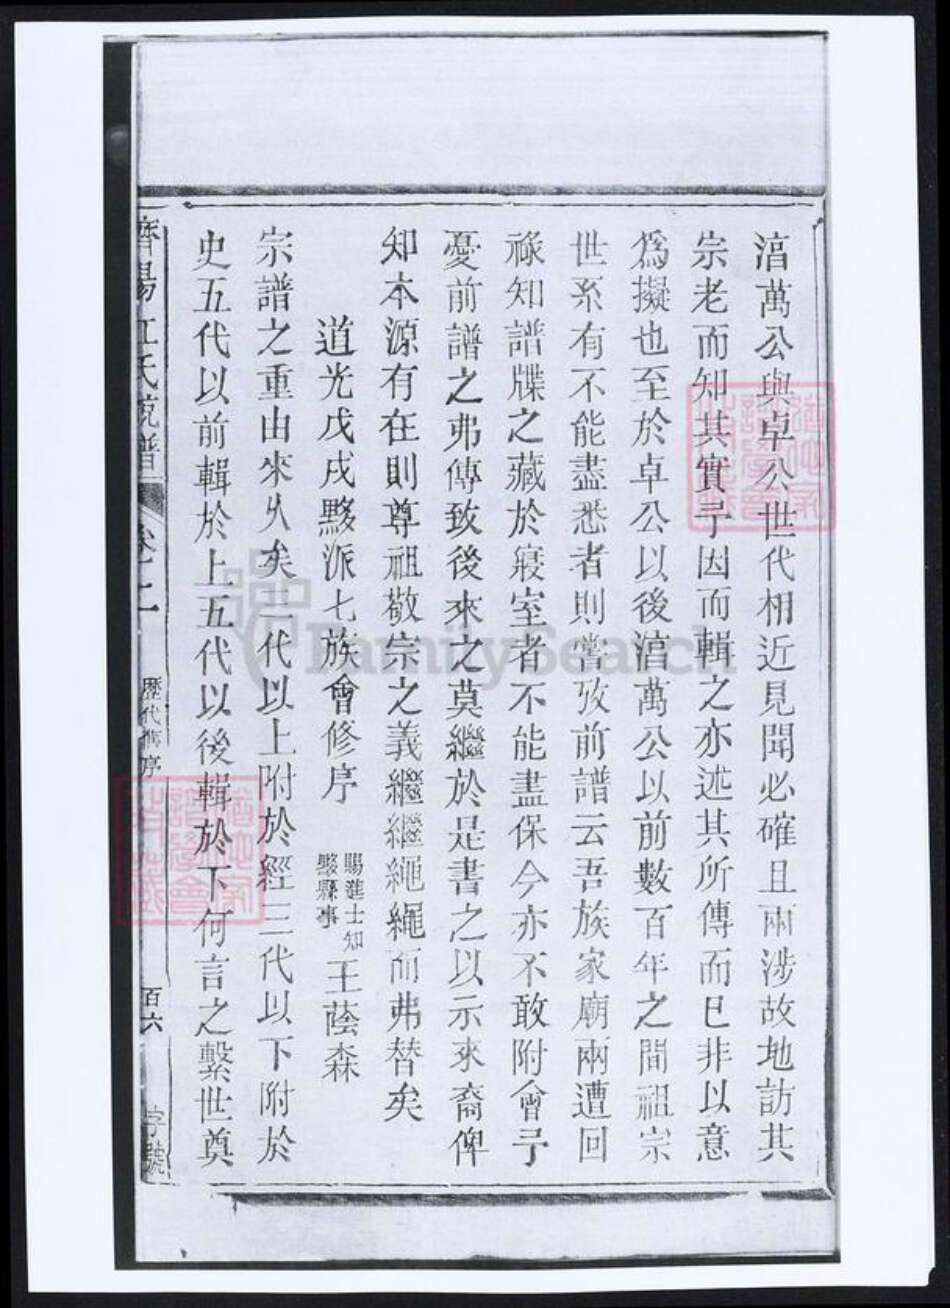 湻萬公與卓公世代相近見聞必確且兩涉故地訪其
宗老而知其實予因而輯之亦述其所傳而已非以意
為擬也至於卓公以後湻萬公以前數百年之間祖宗
世系有不能盡悉者則嘗攷前譜云吾族家廟兩遭回
祿知譜牒之藏於寢室者不能盡保今亦不敢附會予
憂前譜之弗傳致後來之莫繼於是書之以示來裔俾
知本源有在則尊祖敬宗之義繼繼繩繩而弗替矣
道光戊戌黟派七族會修序
賜進士知
黟縣事
王蔭森
宗譜之重由來久矣三代以上附於經三代以下附於
史五代以前輯於上五代以後輯於下何言之繫世奠
濟陽江氏統譜
卷一
歷代舊序
百六
字號
FamilySearch